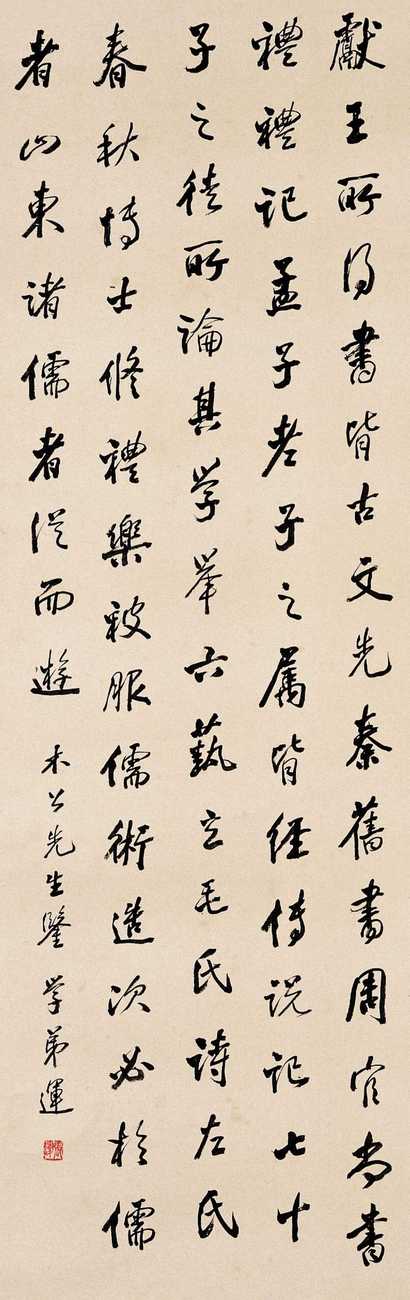 獻王所得書皆古文先秦舊書周官尚書
禮禮記孟子老子之屬皆經傳說記七十
子之徒所論其学舉六藝立毛氏詩左氏
春秋博士修禮樂被服儒術造次必於儒
者山東諸儒者從而遊
木公先生鑒 学弟運